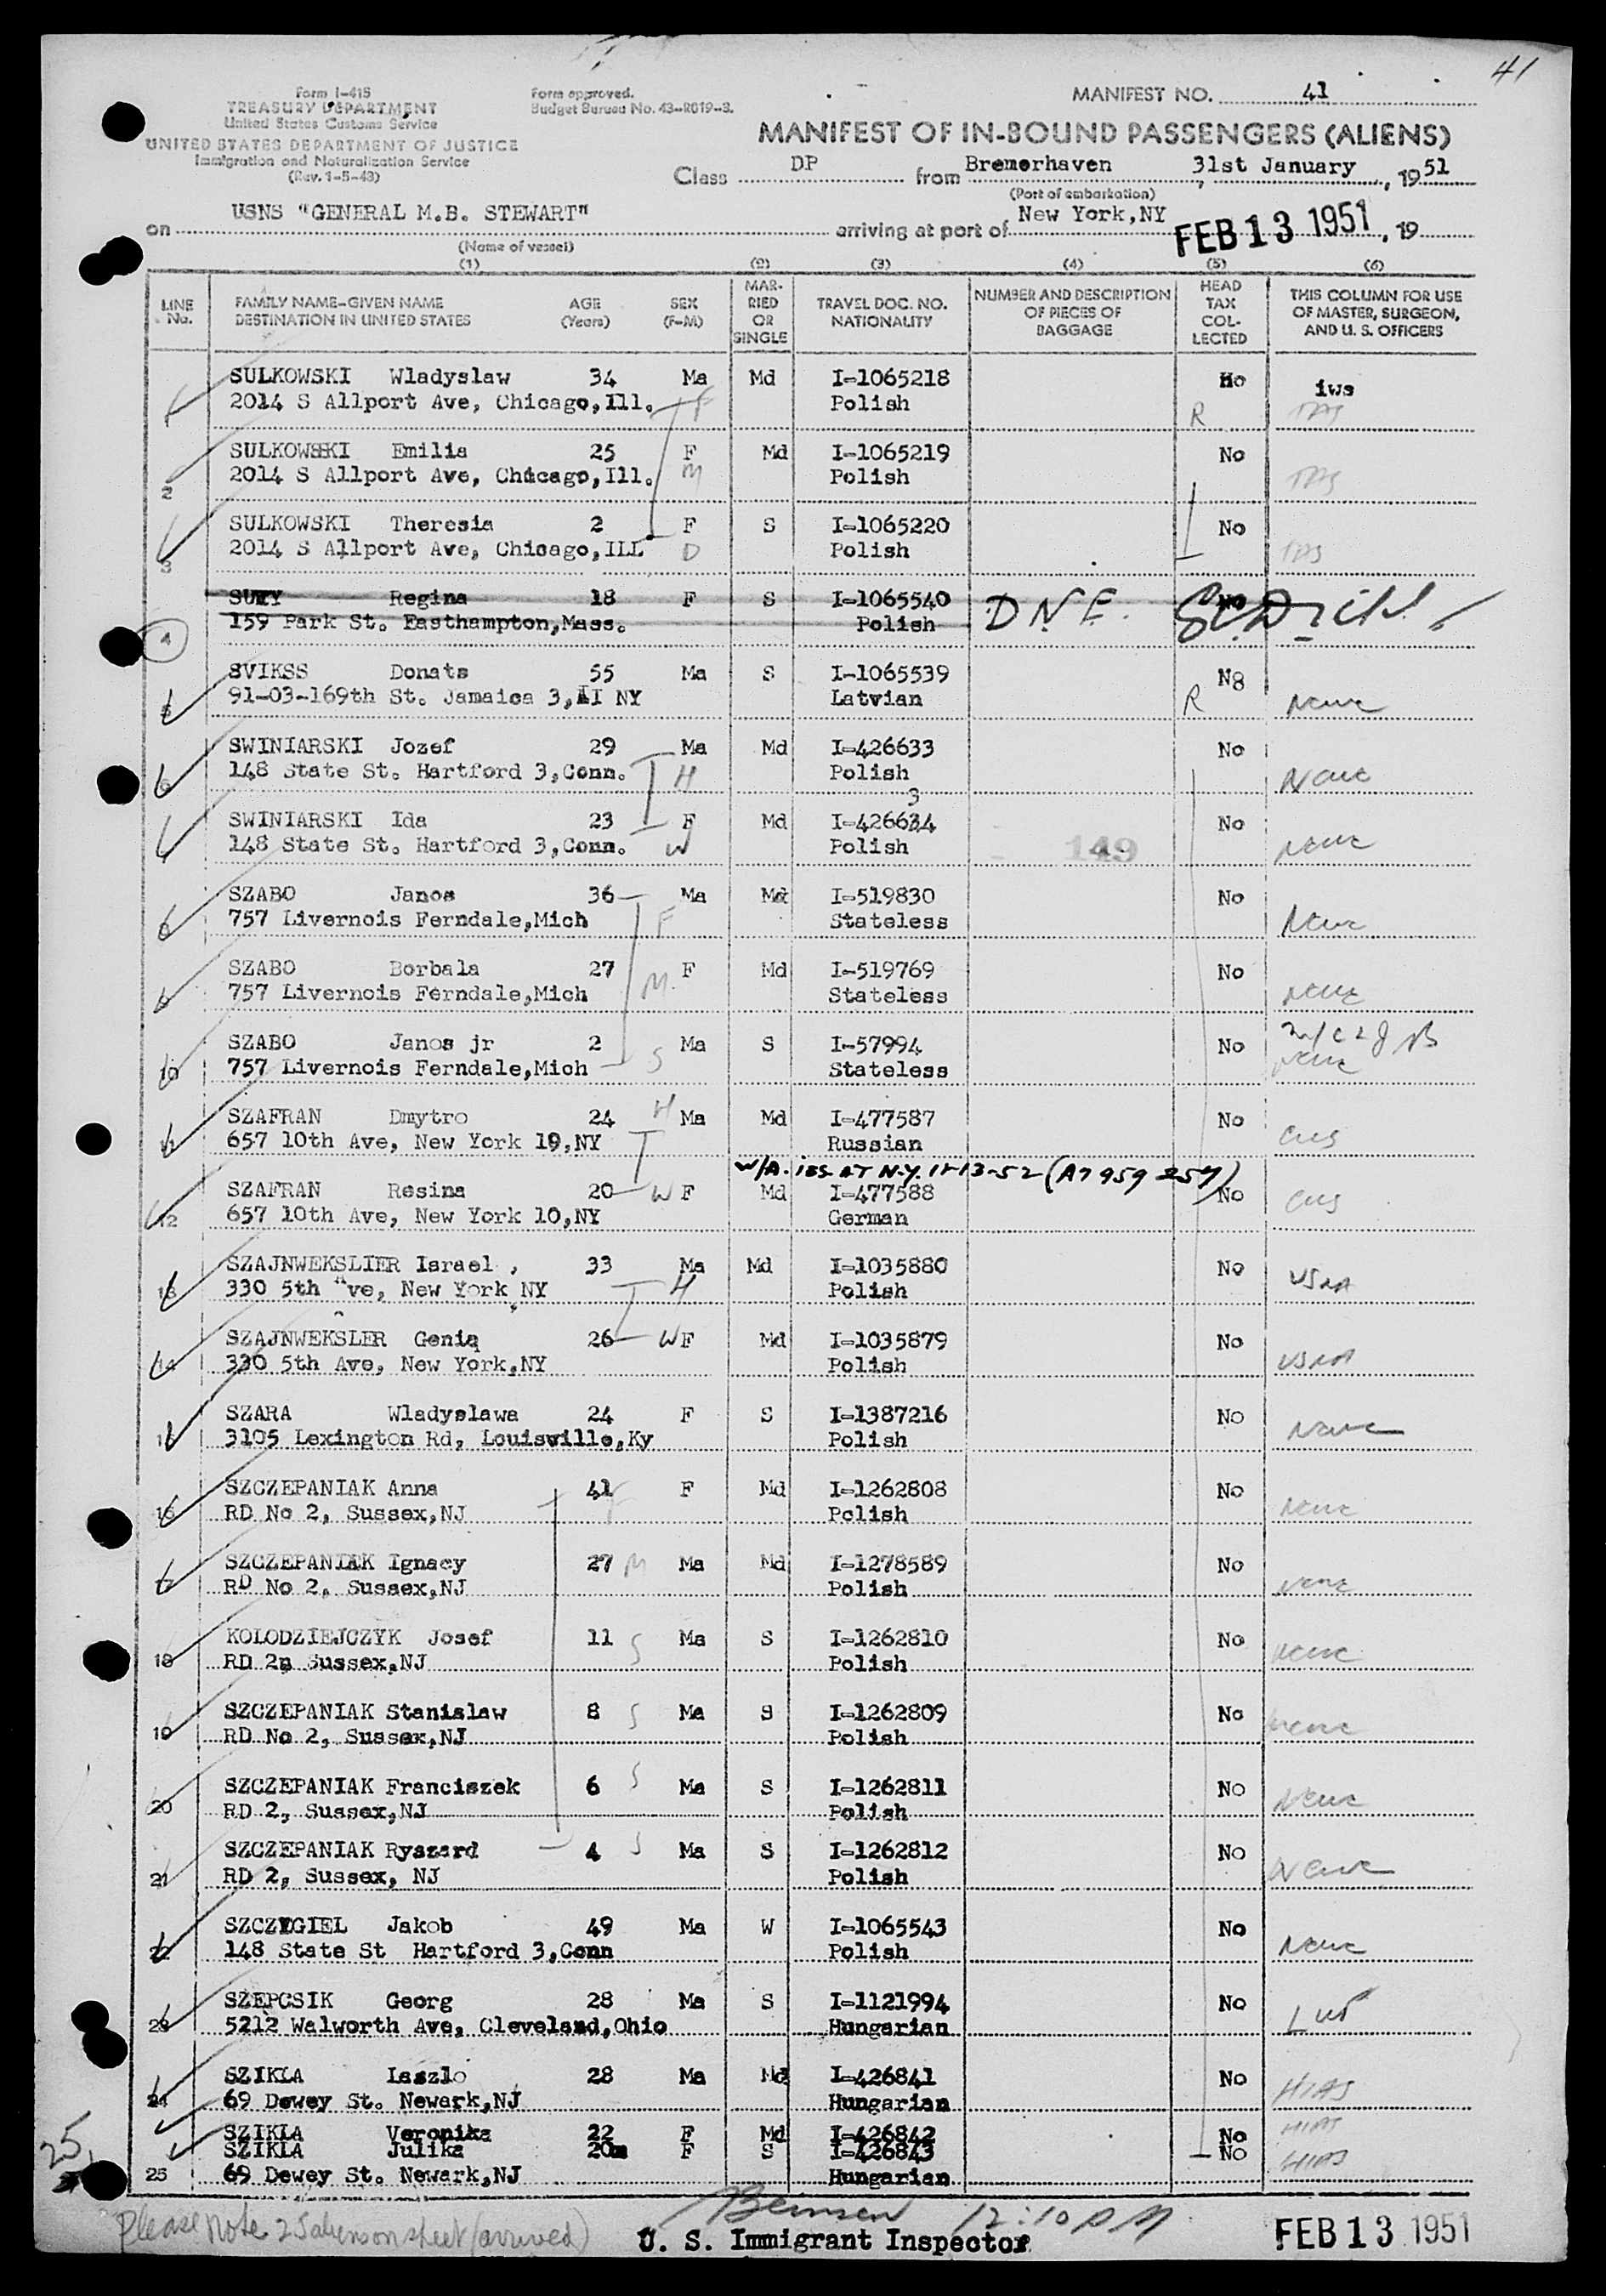 41
Form I-415
TREASURY DEPARTMENT
United States Customs Service
UNITED STATES DEPARTMENT OF JUSTICE
Immigration and Naturalization Service
(Rev. 1-5-43)
Form approved.
Budget Bureau No. 43-R019-3.
MANIFEST NO. 41
MANIFEST OF IN-BOUND PASSENGERS (ALIENS)
Class DP from Bremerhaven, 31st January, 1951
(Port of embarkation)
on USNS "GENERAL M.B. STEWART" arriving at port of New York,NY FEB 13 1951, 19
(Name of vessel)
(1) (2) (3) (4) (5) (6)
LINE No. FAMILY NAME-GIVEN NAME DESTINATION IN UNITED STATES AGE (Years) SEX (F-M) MARRIED OR SINGLE TRAVEL DOC. NO. NATIONALITY NUMBER AND DESCRIPTION OF PIECES OF BAGGAGE HEAD TAX COLLECTED THIS COLUMN FOR USE OF MASTER, SURGEON, AND U. S. OFFICERS
SULKOWSKI Wladyslaw 34 Ma Md I-1065218 No iws
2014 S Allport Ave, Chicago,Ill. F Polish R
SULKOWSKI Emilia 25 F Md I-1065219 No
2 2014 S Allport Ave, Chicago,Ill. M Polish
SULKOWSKI Theresia 2 F S I-1065220 No
3 2014 S Allport Ave, Chicago,ILL D Polish
Regina 18 F S I-1065540 D.N.E. No
4 159 Park St. Easthampton,Mass. Polish
SVIKSS Donats 55 Ma S I-1065539 No
5 91-03-169th St. Jamaica 3, NY Latvian R None
SWINIARSKI Jozef 29 Ma Md I-426633 No
6 148 State St. Hartford 3,Conn. H Polish None
3
SWINIARSKI Ida 23 F Md I-426634 No
148 State St. Hartford 3,Conn. W Polish 149 None
SZABO Janos 36 Ma Md I-519830 No
757 Livernois Ferndale,Mich F Stateless None
SZABO Borbala 27 F Md I-519769 No
9 757 Livernois Ferndale,Mich M Stateless None
SZABO Janos jr 2 Ma S I-57994 No
10 757 Livernois Ferndale,Mich S Stateless None
SZAFRAN Dmytro 24 H Ma Md I-477587 No
11 657 10th Ave, New York 19,NY Russian CWS
W/A. iss AT N.Y. 11-13-52 (A7 959 257)
SZAFRAN Resina 20 W F Md I-477588 No
12 657 10th Ave, New York 10,NY German CWS
SZAJNWEKSLIER Israel 33 Ma Md I-1035880 No
13 330 5th ve, New York NY H Polish USNA
SZAJNWEKSLER Genia 26 W F Md I-1035879 No
14 330 5th Ave, New York,NY Polish USNA
SZARA Wladyslawa 24 F S I-1387216 No
15 3105 Lexington Rd, Louisville,Ky Polish None
SZCZEPANIAK Anna 41 F Md I-1262808 No
16 RD No 2, Sussex,NJ Polish None
SZCZEPANIAK Ignacy 27 M Ma Md I-1278589 No
17 RD No 2, Sussex,NJ Polish None
KOLODZIEJCZYK Josef 11 S Ma S I-1262810 No
18 RD 2n Sussex,NJ Polish None
SZCZEPANIAK Stanislaw 8 S Ma S I-1262809 No
19 RD No 2, Sussex,NJ Polish None
SZCZEPANIAK Franciszek 6 S Ma S I-1262811 No
20 RD 2, Sussex,NJ Polish None
SZCZEPANIAK Ryszard 4 S Ma S I-1262812 No
21 RD 2, Sussex, NJ Polish None
SZCZYGIEL Jakob 49 Ma W I-1065543 No
22 148 State St Hartford 3,Conn Polish None
SZEPCSIK Georg 28 Ma S I-1121994 No
23 5212 Walworth Ave, Cleveland,Ohio Hungarian
SZIKLA Laszlo 28 Ma Md I-426841 No
24 69 Dewey St. Newark,NJ Hungarian HIAS
SZIKLA Veronika 22 F Md I-426842 No HIAS
SZIKLA Julika 20m F S I-426843 No HIAS
25 69 Dewey St. Newark,NJ Hungarian
25
Please note 25 aliens on sheet (arrived)
12:10 PM
U. S. Immigrant Inspector
FEB 13 1951